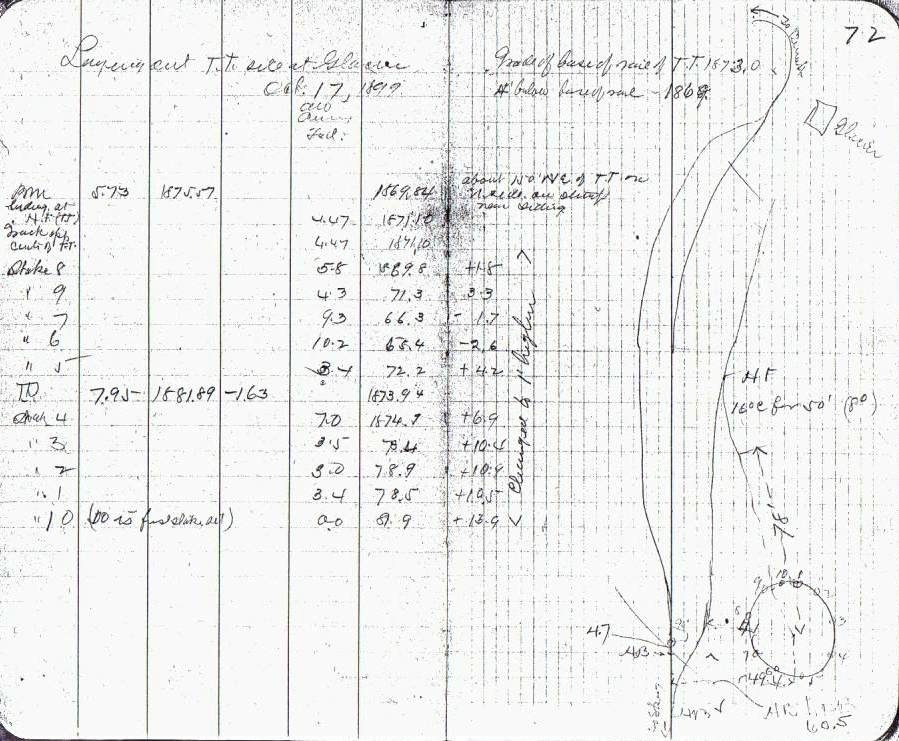 72
Laying out T.T. site at Glacier
Oct. 17, 1899
Grade of base of rail of T.T. 1873.0
4' below base of rail - 1869.
Glacier
BM 5.73 1875.57 1869.84
about 150' NE of T.T. on
N side on stump
near siding
4.47 1871.10
Track opp
Center of T.T. 4.47 1871.10
Stake 8 5.8 1869.8 +1.8
" 9 4.3 71.3 3.3
" 7 9.3 66.3 - 1.7
" 6 10.2 65.4 -2.6
" 5 3.4 72.2 +4.2
7.95 1881.89 -1.63 1873.94
Stake 4 7.0 1874.9 +6.9
" 3 3.5 78.4 +10.4
" 2 3.0 78.9 +10.9
" 1 3.4 78.5 +10.5
" 10 (10 is first stake set) 0.0 81.9 +13.9
Changed to 1' higher
H.F.
16°C for 50' (8°)
78'
10 1
9 2
3
8
4
7
6 5
4.7
60.5